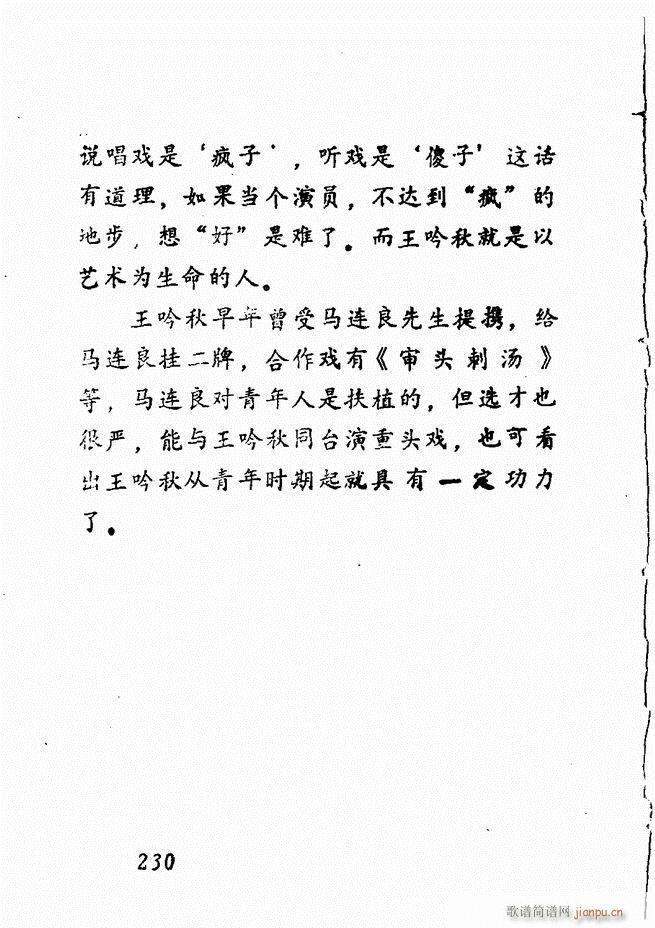 说唱戏是‘疯子’，听戏是‘傻子’这话
有道理，如果当个演员，不达到“疯”的
地步，想“好”是难了。而王吟秋就是以
艺术为生命的人。
王吟秋早年曾受马连良先生提携，给
马连良挂二牌，合作戏有《审头刺汤》
等，马连良对青年人是扶植的，但选才也
很严，能与王吟秋同台演重头戏，也可看
出王吟秋从青年时期起就具有一定功力
了。
230
歌谱简谱网 jianpu.cn